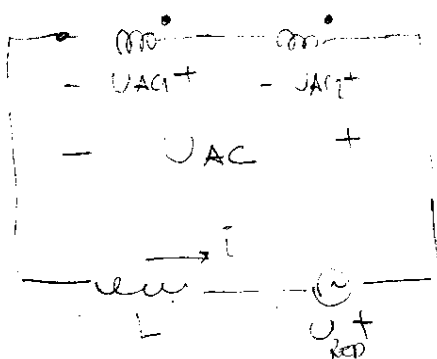 - UAC1 + - UAC2 +
- UAC +
i
L U RED +